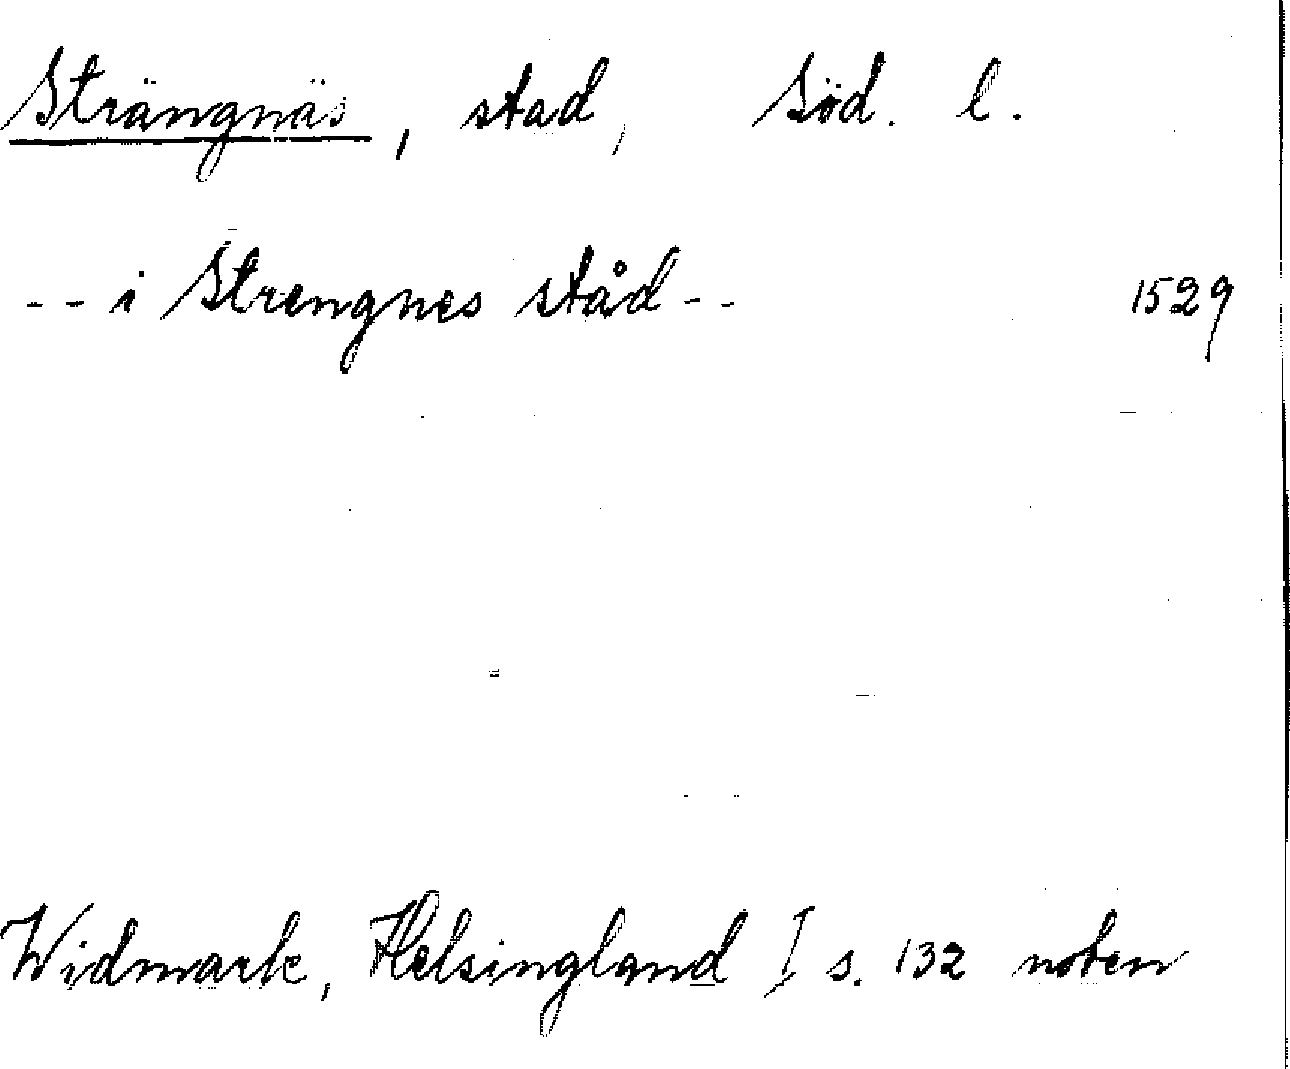 Strängnäs, stad, Söd. l.
-- i Strengnes ståd -- 1529
Widmark, Helsingland I s. 132 noten